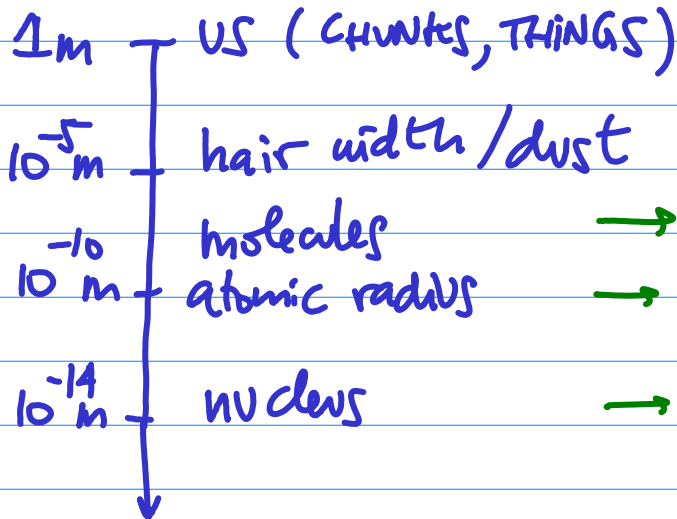 1m US (CHUNKS, THINGS)
10⁻⁵m hair width/dust
molecules
10⁻¹⁰m atomic radius
10⁻¹⁴m nucleus